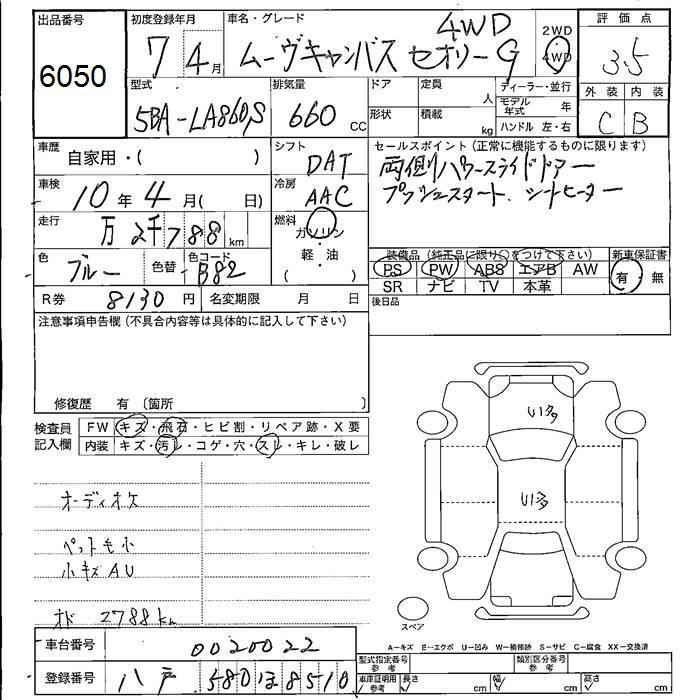 出品番号
6050
初度登録年月
7年4月
車名・グレード
4WD
ムーヴキャンバス セオリーG
2WD
4WD
評価点
3.5
型式
5BA-LA860S
排気量
660 CC
ドア
定員
人
形状
積載
kg
ディーラー・並行
モデル年式 年
ハンドル 左・右
外装 内装
C B
車歴
自家用・( )
シフト
DAT
セールスポイント(正常に機能するものに限ります)
両側パワースライドドアー
プッシュスタート、シートヒーター
車検
10年4月( 日)
冷房
AAC
走行
万2千788km
燃料
ガソリン
軽・油
( )
色
ブルー
色替
色コード
B82
装備品(純正品に限り○をつけて下さい)
PS PW ABS エアB AW
SR ナビ TV 本革
新車保証書
有・無
R券 8130円
名変期限 月 日
後日品
注意事項申告欄(不具合内容等は具体的に記入して下さい)
修復歴 有 〔箇所 〕
検査員記入欄
FW キズ・飛石・ヒビ割・リペア跡・X要
内装 キズ・汚レ・コゲ・穴・スレ・キレ・破レ
オーディオケ
小キズAU
オド 2788km
U1多
U1多
スペア
A…キズ E…エクボ U…凹み W…補修跡 S…サビ C…腐食 XX…交換済
車台番号
0020022
型式指定番号
参考
類別区分番号
参考
登録番号
八戸 580 ほ 8510
車庫証明用
参考
長さ cm
幅 cm
高さ cm